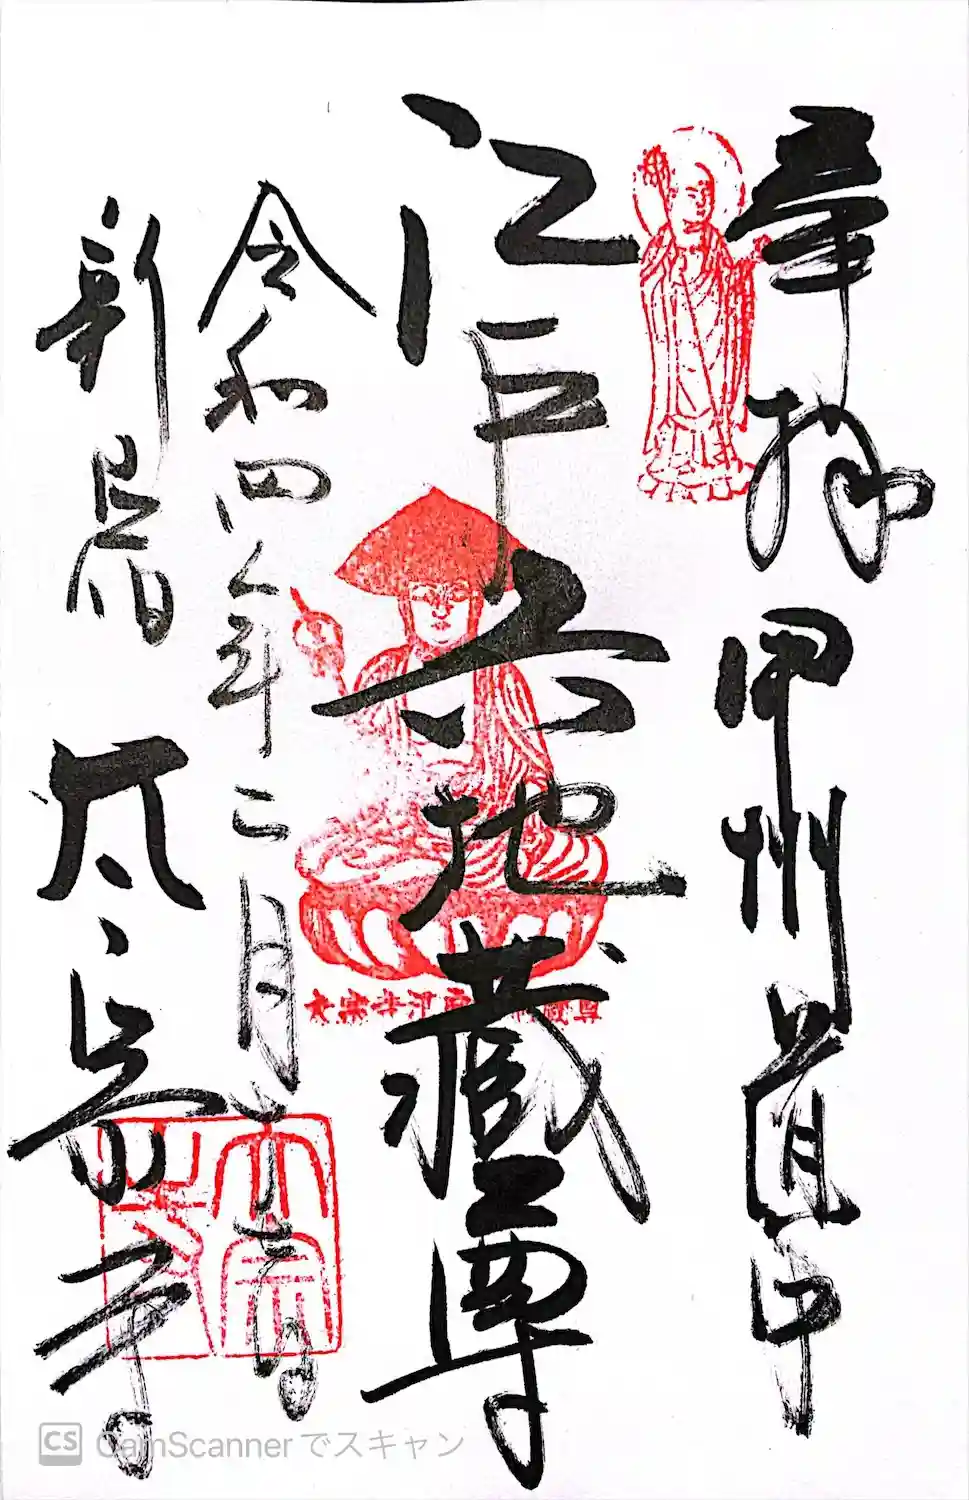 奉拝 甲州道中
江戸六地蔵尊
令和四年二月十二日
新宿 太宗寺
太宗寺江戸六地蔵尊
太宗寺
CS CamScannerでスキャン